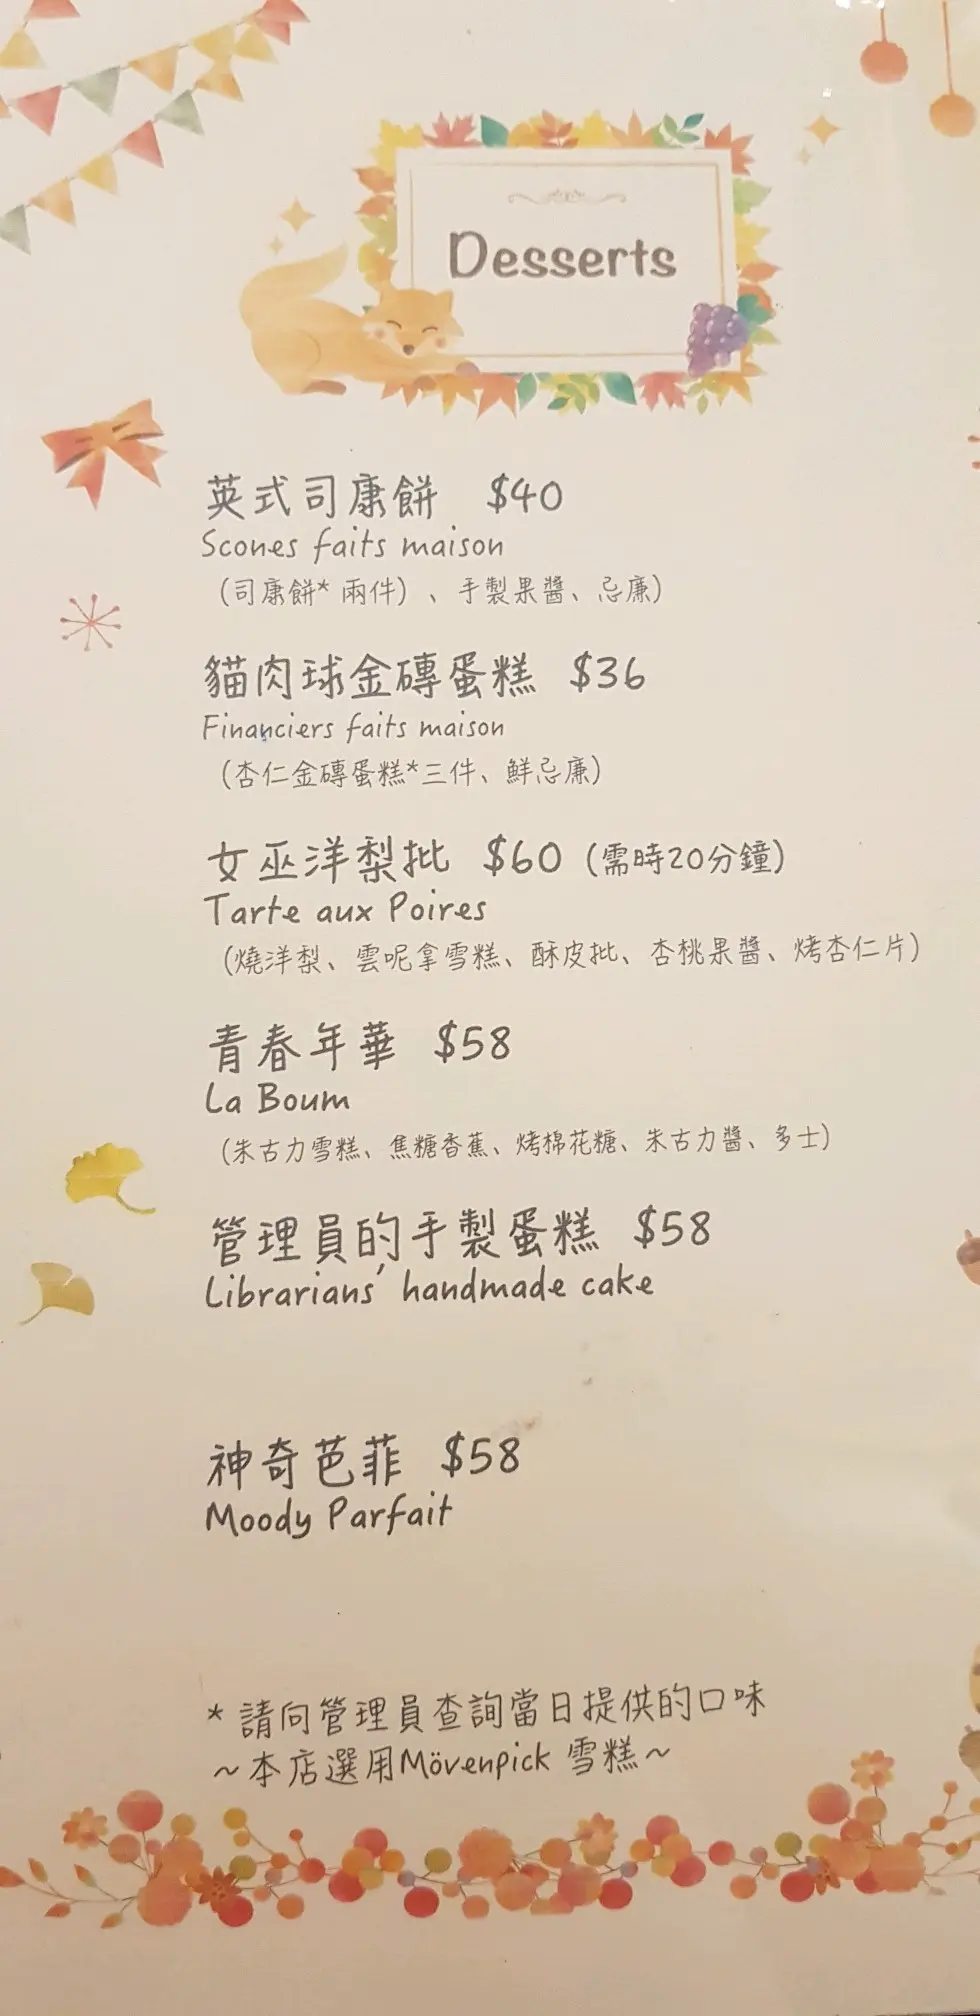 Desserts
英式司康餅 $40
Scones faits maison
(司康餅* 兩件)、手製果醬、忌廉)
貓肉球金磚蛋糕 $36
Financiers faits maison
(杏仁金磚蛋糕*三件、鮮忌廉)
女巫洋梨批 $60 (需時20分鐘)
Tarte aux Poires
(燒洋梨、雲呢拿雪糕、酥皮批、杏桃果醬、烤杏仁片)
青春年華 $58
La Boum
(朱古力雪糕、焦糖香蕉、烤棉花糖、朱古力醬、多士)
管理員的手製蛋糕 $58
Librarians' handmade cake
神奇芭菲 $58
Moody Parfait
* 請向管理員查詢當日提供的口味
~本店選用Mövenpick 雪糕~